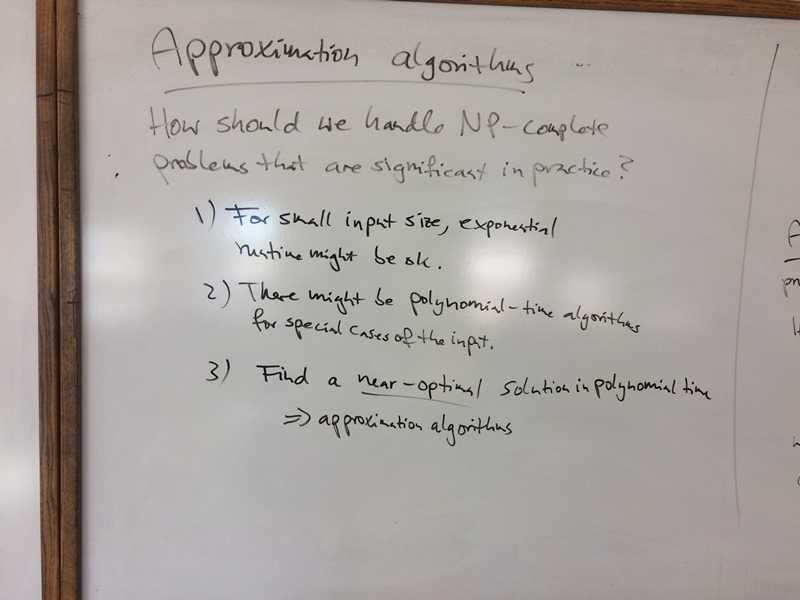 Approximation algorithms ...
How should we handle NP-complete
problems that are significant in practice?
1) For small input size, exponential
runtime might be ok.
2) There might be polynomial-time algorithms
for special cases of the input.
3) Find a near-optimal solution in polynomial time
⇒ approximation algorithms